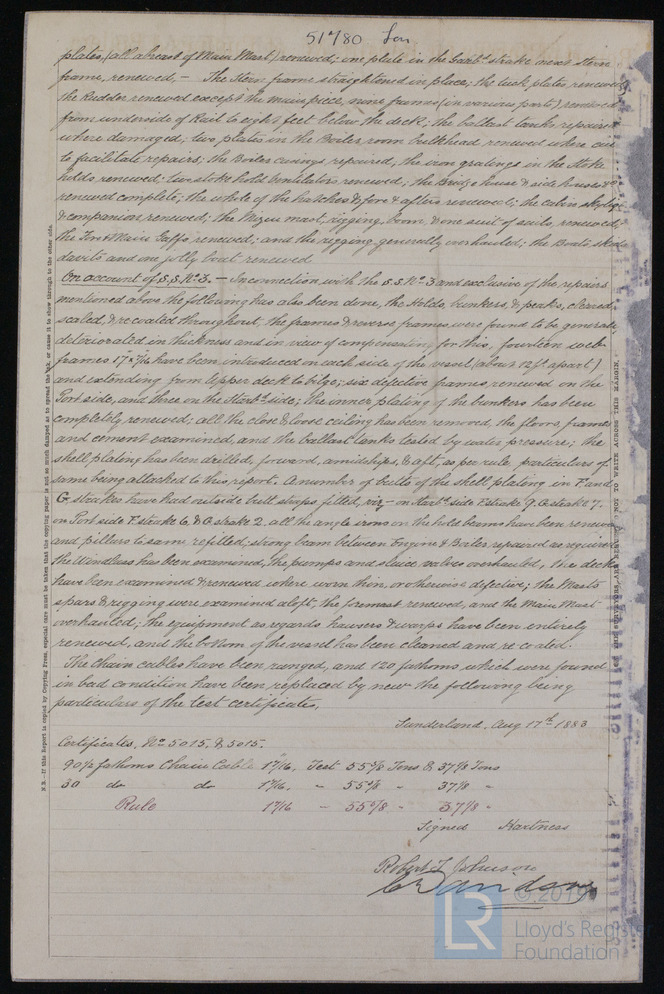 51780 Lon
plates, (all abreast of Main Mast) renewed; one plate in the Garbd strake next Stern
frame, renewed, — The Stern frame straightened in place; the tuck plates renewed,
the Rudder renewed except the mainpiece, some frames (in various parts) renewed
from underside of Rail to eight feet below the deck; the ballast tanks repaired
where damaged; two plates in the Boiler room bulkhead renewed where cut
to facilitate repairs; the Boiler casings repaired, the iron gratings in the Stoke
holds renewed; two stoke hold ventilators renewed; the Bridge house & side houses
renewed complete; the whole of the hatches & fore & afters renewed; the cabin skylight
& companion renewed; the Mizen mast, rigging, boom, & one suit of sails, renewed,
the Fore & Main Gaffs renewed; and the rigging generally overhauled; the Boats skids
davits and one jolly boat renewed
On account of S.S. No 3. — In connection with the S.S. No 3 and exclusive of the repairs
mentioned above the following has also been done, the Holds, bunkers, & peaks, cleared,
scaled, & recoated throughout, the frames & reverse frames were found to be generally
deteriorated in thickness and in view of compensating for this, fourteen web
frames 17" x 7/16 have been introduced on each side of the vessel (about 12 ft apart)
and extending from Upper deck to bilge; six defective frames renewed on the
Port side, and three on the Starbd side; the inner plating of the bunkers has been
completely renewed; all the close & loose ceiling has been removed, the floors, frames
and cement examined, and the ballast tanks tested by water pressure; the
shell plating has been drilled, forward, amidships, & aft, as per rule, particulars of
same being attached to this report. A number of butts of the shell plating in F and
G strakes have had outside butt straps fitted, viz — on Starbd side F strake 9. G strake 7.
on Port side F strake 6. & G strake 2. all the angle irons on the hold beams have been renewed
and pillars to same refitted; strong beam between Engine & Boiler repaired as required
the Windlass has been examined, the pumps and sluice valves overhauled, the decks
have been examined & renewed where worn thin, or otherwise defective; the Masts
spars & rigging were examined aloft, the foremast renewed, and the Main Mast
overhauled; the equipment as regards hawsers & warps have been entirely
renewed, and the bottom of the vessel has been cleaned and re coated.
The Chain cables have been ranged, and 120 fathoms which were found
in bad condition have been replaced by new the following being
particulars of the test certificates,
Sunderland, Aug 17th 1883
Certificates. Nos 5015. & 5015.
90 1/2 fathoms Chain Cable 1 7/16. Test 55 5/8 Tons & 37 1/8 Tons
30 do do 1 7/16. " 55 5/8 " 37 1/8 "
Rule 1 7/16 " 55 5/8 " 37 1/8 "
Signed Hartness
Robert L Johnson
N.B.—If this Report is copied by Copying Press, especial care must be taken that the copying paper is not so much damped as to spread the ink, or cause it to show through to the other side.
NOT TO WRITE ACROSS THIS MARGIN.
© 2019
LR
Lloyd's Register
Foundation